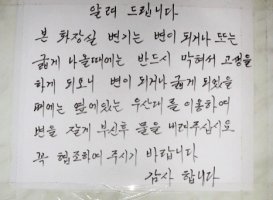 알려 드립니다.
본 화장실 변기는 변이 되거나 또는
굵게 나올때에는 반드시 막혀서 고생을
하게 되오니 변이 되거나 굵게 되었을
때에는 옆에있는 우산대를 이용하여
변을 잘게 부신후 물을 내려주십시요
꼭 협조하여 주시기 바랍니다
감사 합니다